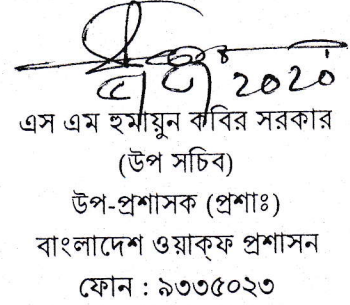 2020
এস এম হুমায়ুন কবির সরকার
(উপ সচিব)
উপ-প্রশাসক (প্রশাঃ)
বাংলাদেশ ওয়াক্ফ প্রশাসন
ফোন : ৯৩৩৫০২৩